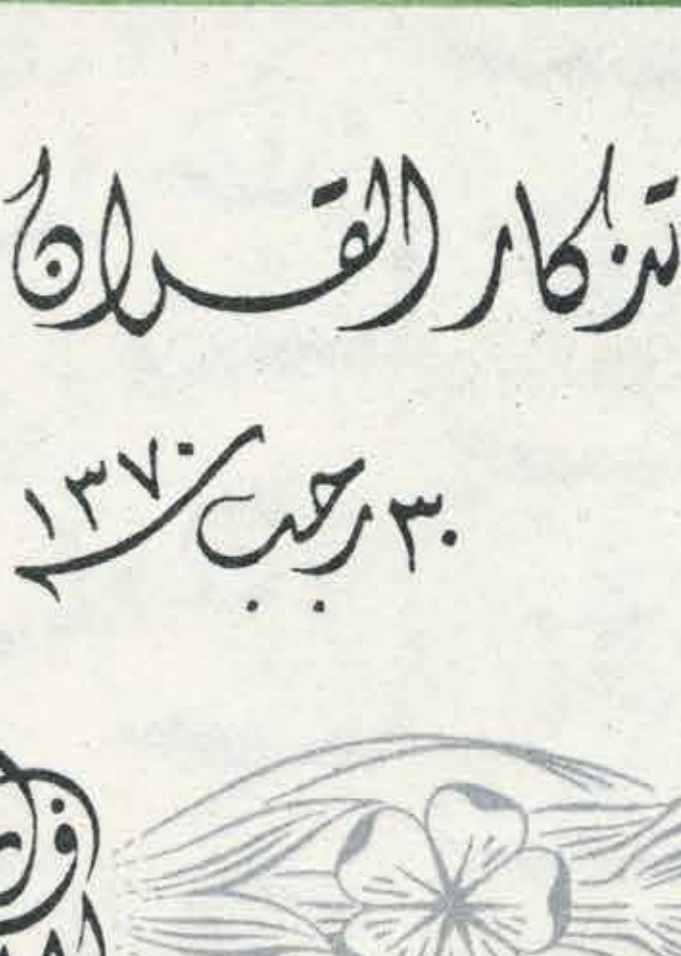 تذكار القران
٣٠ رجب ١٣٧٠